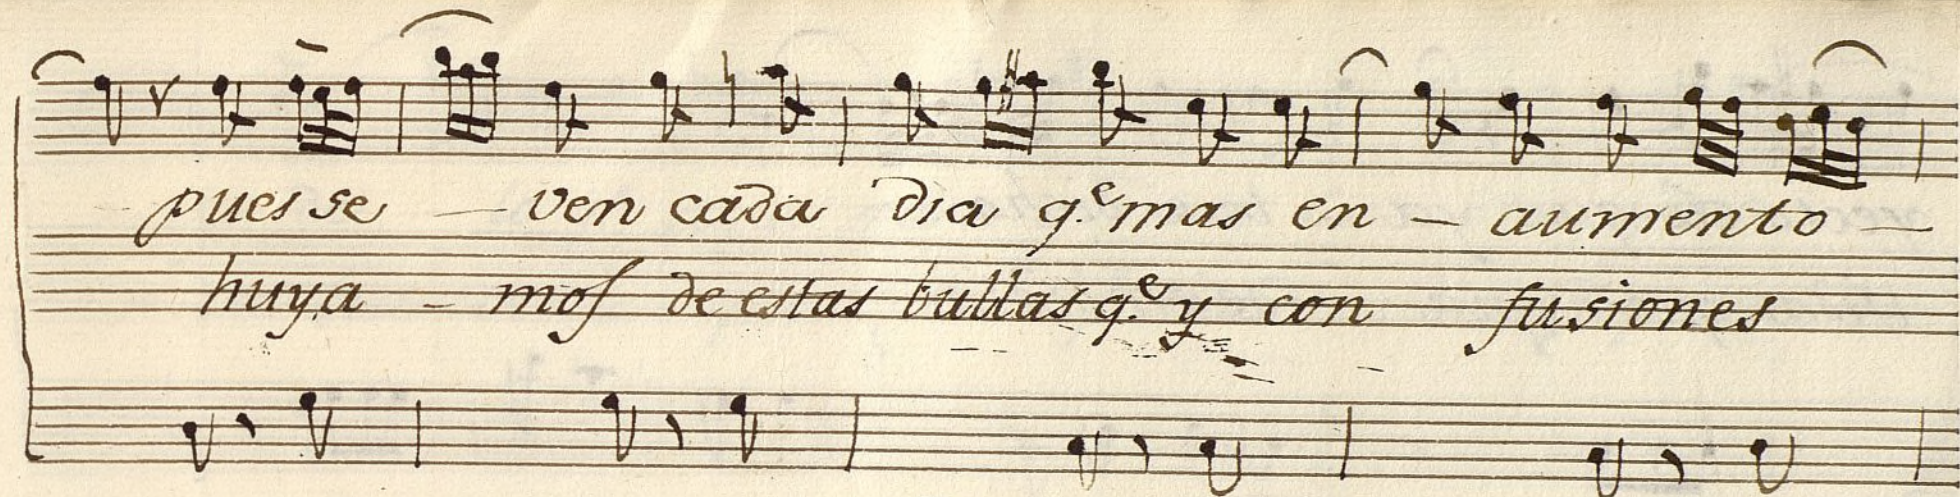 pues se — ven cada dia q.e mas en — aumento —
huya — mos de estas bullas q.e y con fusiones